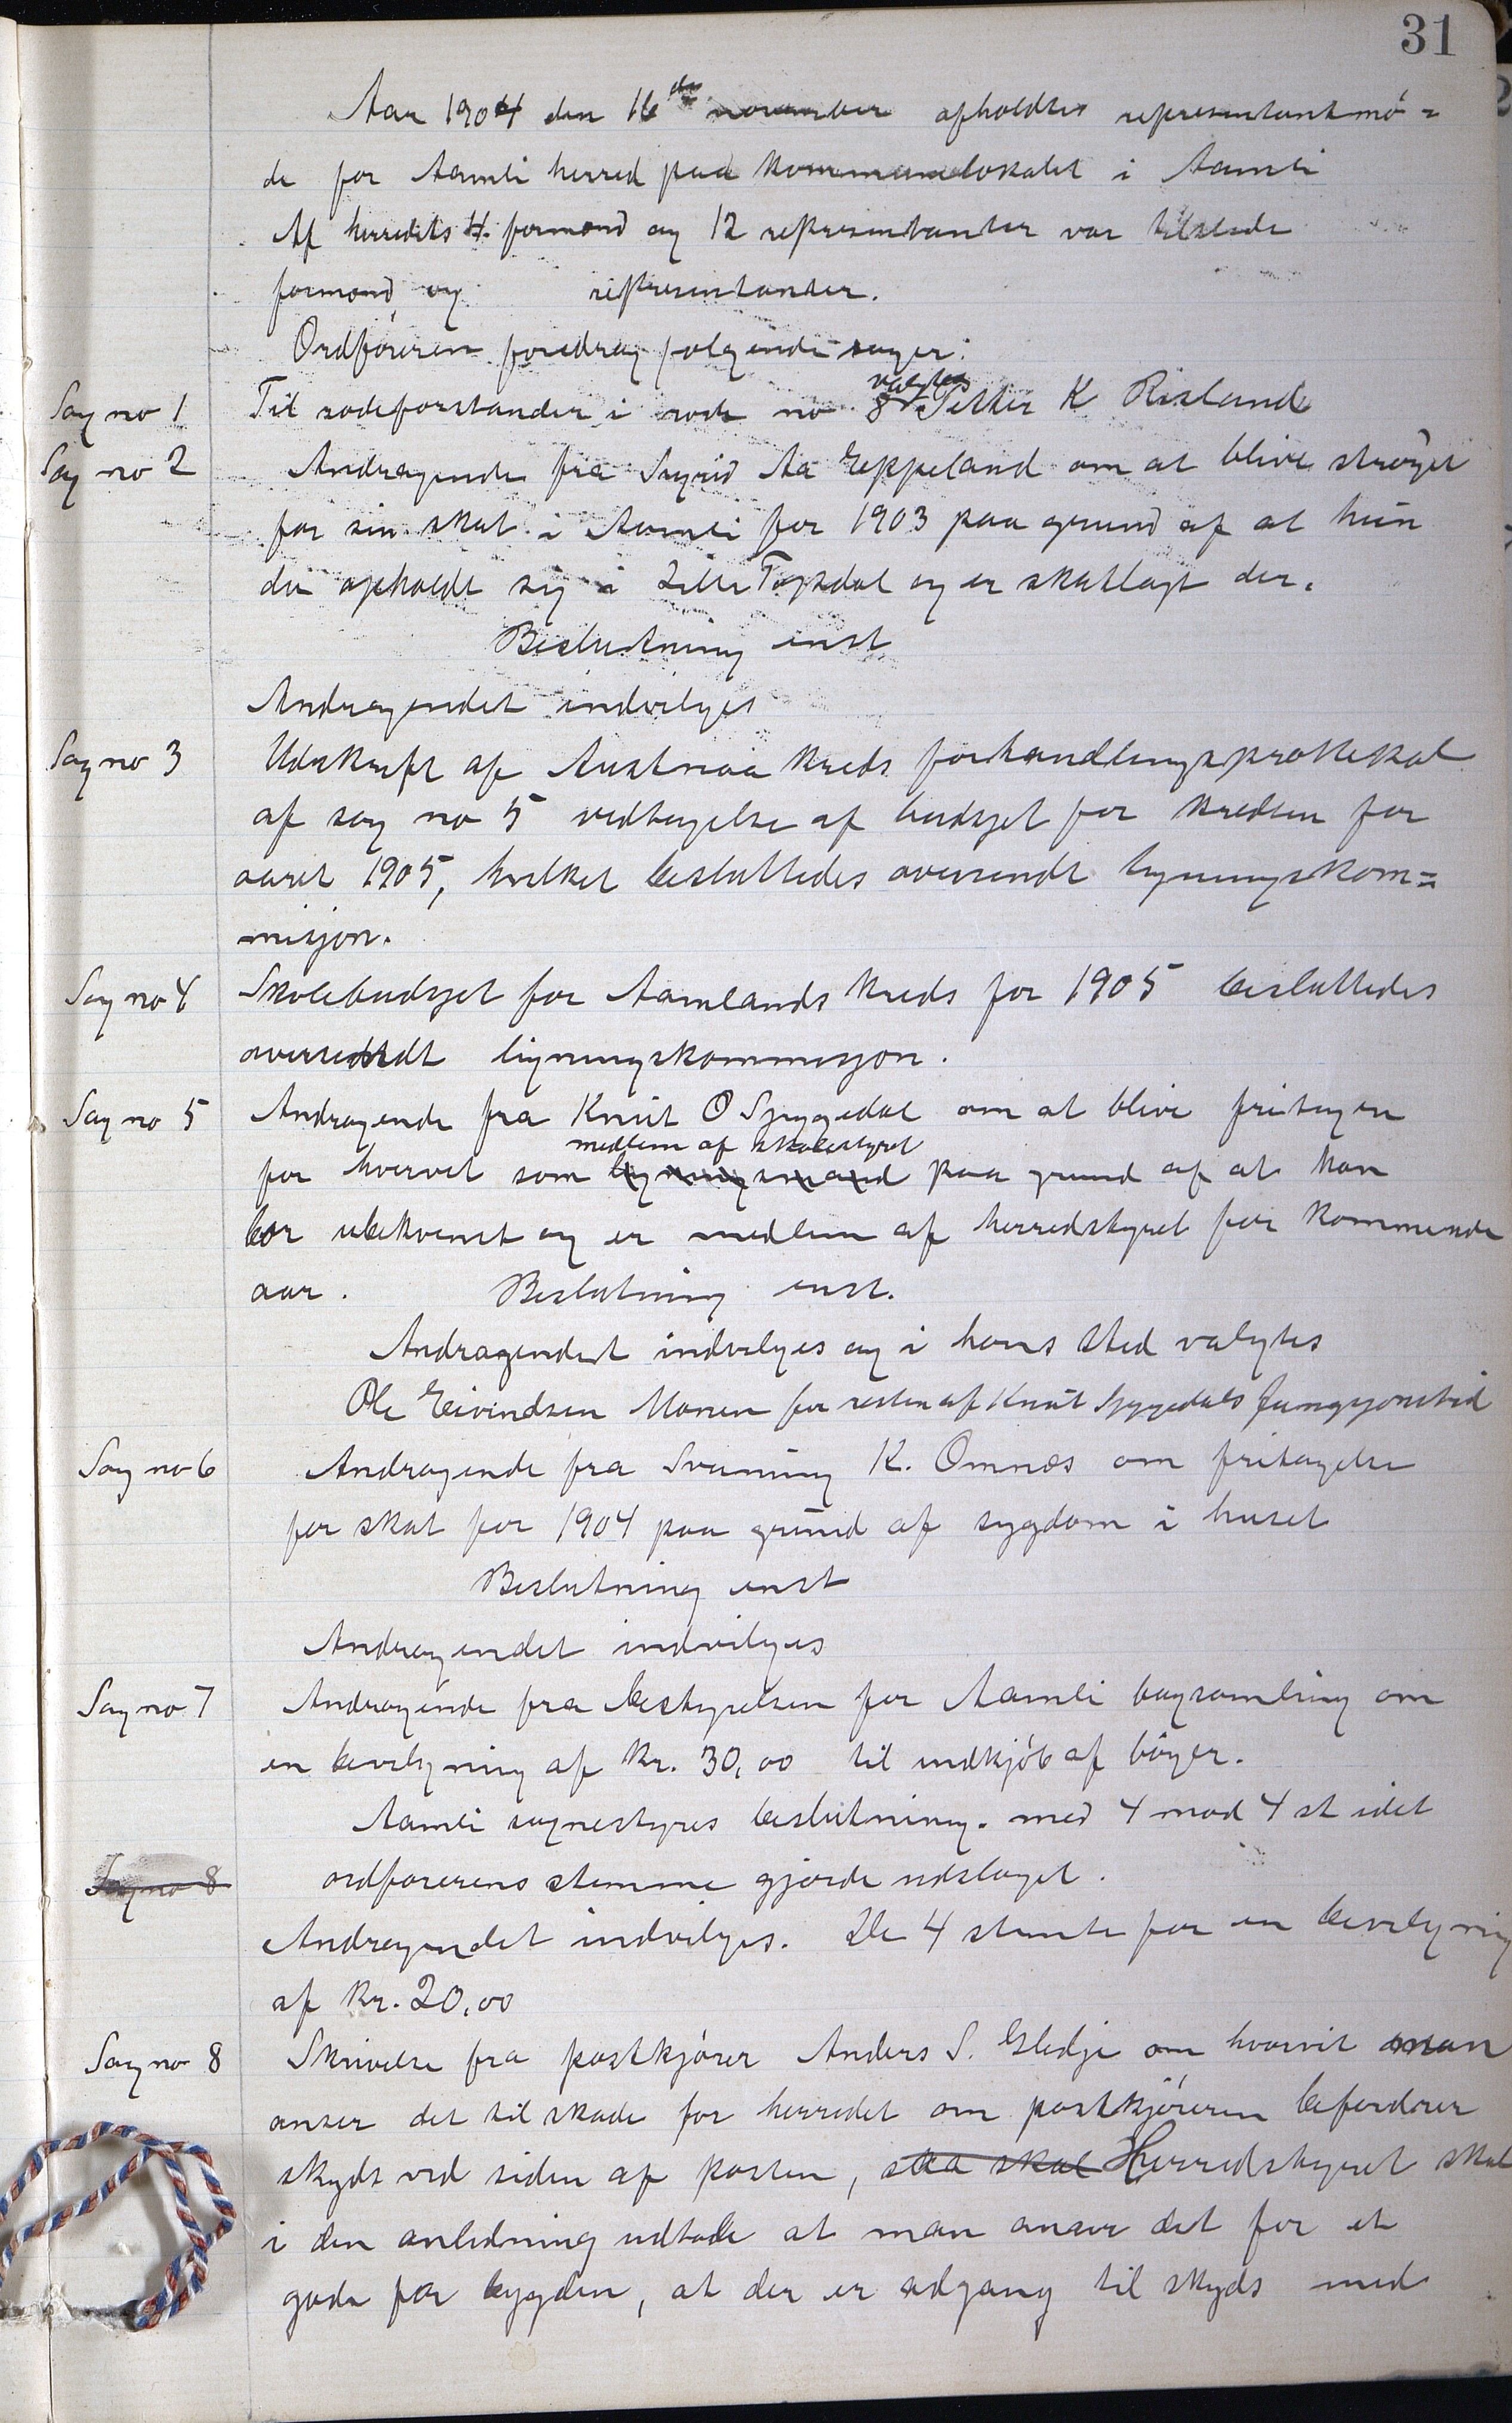 31
Aar 1904 den 16de november afholdtes representantmö=
de for Aamli herred paa kommunelokalet i Aamli
Af herredets 4 formænd og 12 representanter var tilstede
formænd og representander.
Ordföreren foredrog fölgende sager:
Sag no 1 Til rodeforstander i rode no 8 valgtes Petter K Risland
Sag no 2 Andragende fra Sigrid Aa Eppeland om at blive ströget
for sin skat i Aamli for 1903 paa grund af at hun
da opholdt sig i Lille Topdal og er skatlagt der.
Beslutning enst
Andragendet indvilges
Sag no 3 Udskrift af Austenaa kreds forhandlingsprottekol
af sag no 5 vedtagelse af budsjet for kredsen for
aaret 1905, hvilket besluttedes oversendt ligningskom=
misjon.
Sag no 4 Skolebudsjet for Aamlands kreds for 1905 besluttedes
oversendt ligningskommisjon.
Sag no 5 Andragende fra Knut O Sjyggedal om at blive fritagen
for hvervet som ligningsmand medlem af skolestyret paa grund af at han
bor ubekvemt og er medlem af herredstyret for kommende
aar. Beslutning enst.
Andragendet indvilges og i hans sted valgtes
Ole Eivindsen Monen for resten af Knut Sjyggedals fungsjonstid
Sag no 6 Andragende fra Svenning K. Omnes om fritagelse
for skat for 1904 paa grund af sygdom i huset
Beslutning enst
Andragendet indvilges
Sag no 7 Andragende fra bestyrelsen for Aamli bogsamling om
en bevilgning af kr. 30,00 til indkjöb af böger.
Aamli sognestyres beslutning. med 4 mod 4 st idet
Sag no 8 ordförerens stemme gjorde udslaget.
Andragendet indvilges. De 4 stemte for en bevilgning
af kr. 20,00
Sag no 8 Skrivelse fra postkjörer Anders S. Gledje om hvorvit man
anser det til skade for herredet om postkjöreren befordrer
skyds ved siden af posten, skal Herredstyret skal
i den anledning udtale at man anser det for et
gode for bygden, at der er adgang til skyds med